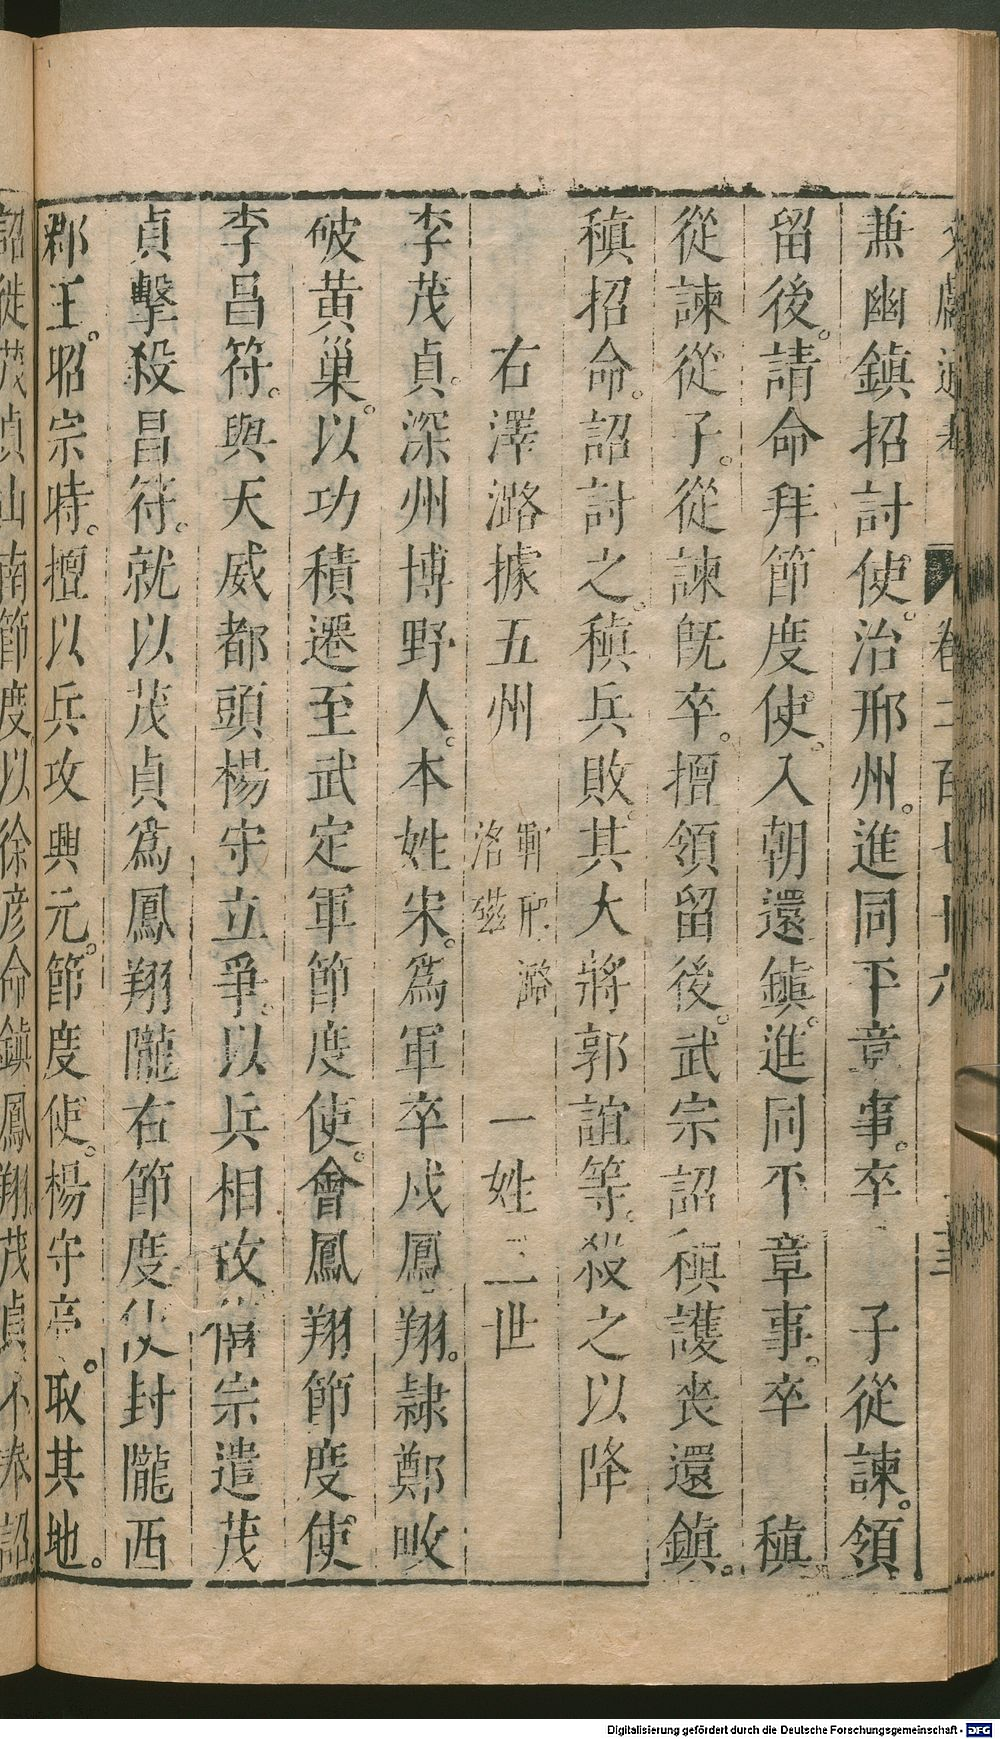 兼幽鎮招討使。治邢州。進同平章事。卒 子從諫。領
留後。請命拜節度使。入朝還鎮。進同平章事。卒 稹
從諫從子。從諫既卒。擅領留後。武宗詔稹護喪還鎮。
稹招命。詔討之。稹兵敗。其大將郭誼等。殺之以降
右澤潞據五州 邢潞 洺磁 一姓三世
李茂貞。深州博野人。本姓宋。為軍卒戍鳳翔。隸鄭畋
破黃巢。以功積遷至武定軍節度使。會鳳翔節度使
李昌符。與天威都頭楊守立爭。以兵相攻僖宗遣茂
貞擊殺昌符。就以茂貞為鳳翔隴右節度使封隴西
郡王。昭宗時。擅以兵攻興元。節度使。楊守亮。取其地。
詔徙茂貞山南節度以徐彦命鎮鳳翔。茂貞不奉詔。
Digitalisierung gefördert durch die Deutsche Forschungsgemeinschaft - DFG